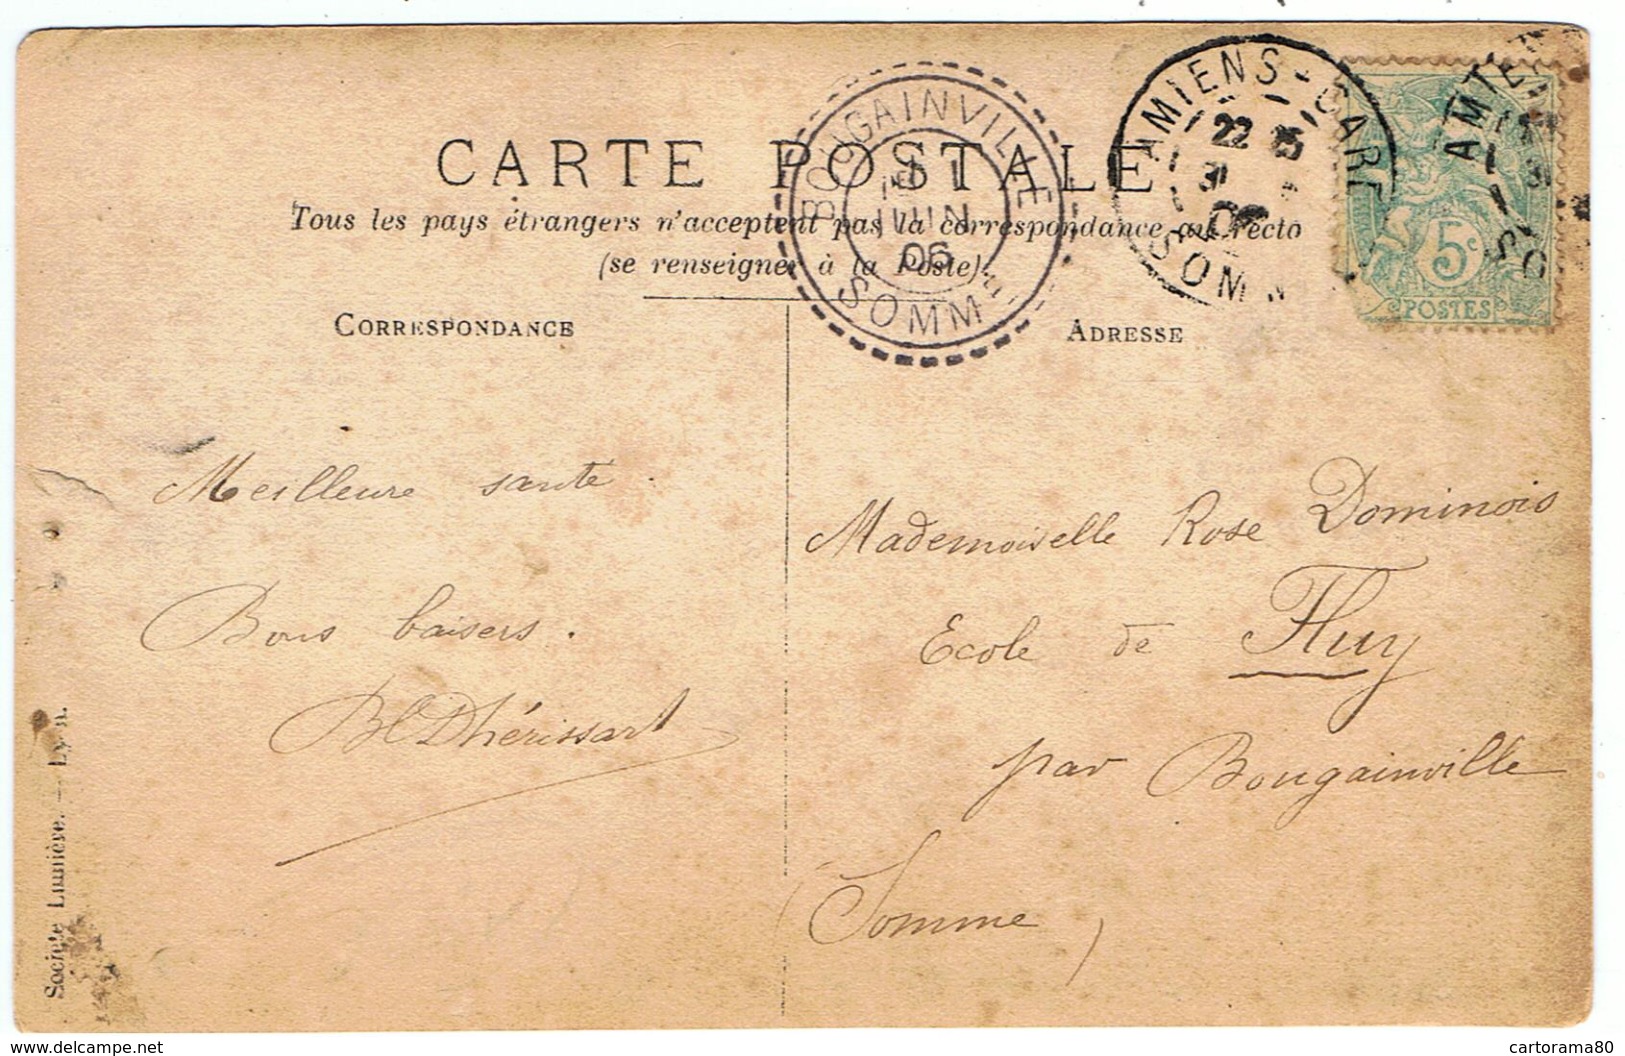 CARTE POSTALE
Tous les pays étrangers n'acceptent pas la correspondance au recto
(se renseigner à la Poste)
CORRESPONDANCE
ADRESSE
BOUGAINVILLE
1
JUIN
06
SOMME
AMIENS-GARE
22 15
31
SOM
AMIE
5c
POSTES
Meilleure santé.
Bons baisers.
Dhérissart
Mademoiselle Rose Dominois
Ecole de Fluy
par Bougainville
(Somme)
Société Lumière. — Lyon.
delcampe.net
cartorama80